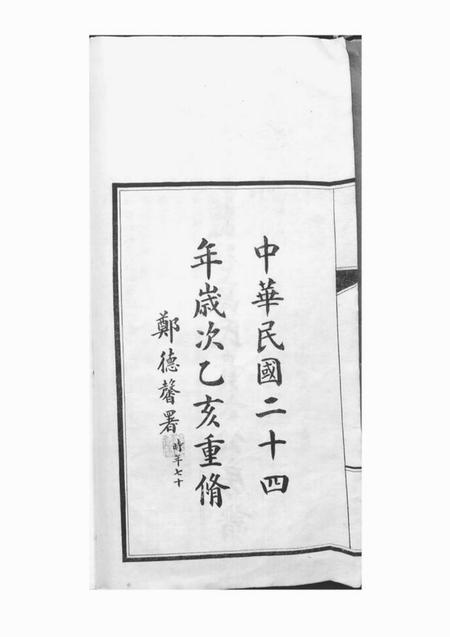 中華民國二十四
年歲次乙亥重脩
鄭德馨署
時年七十